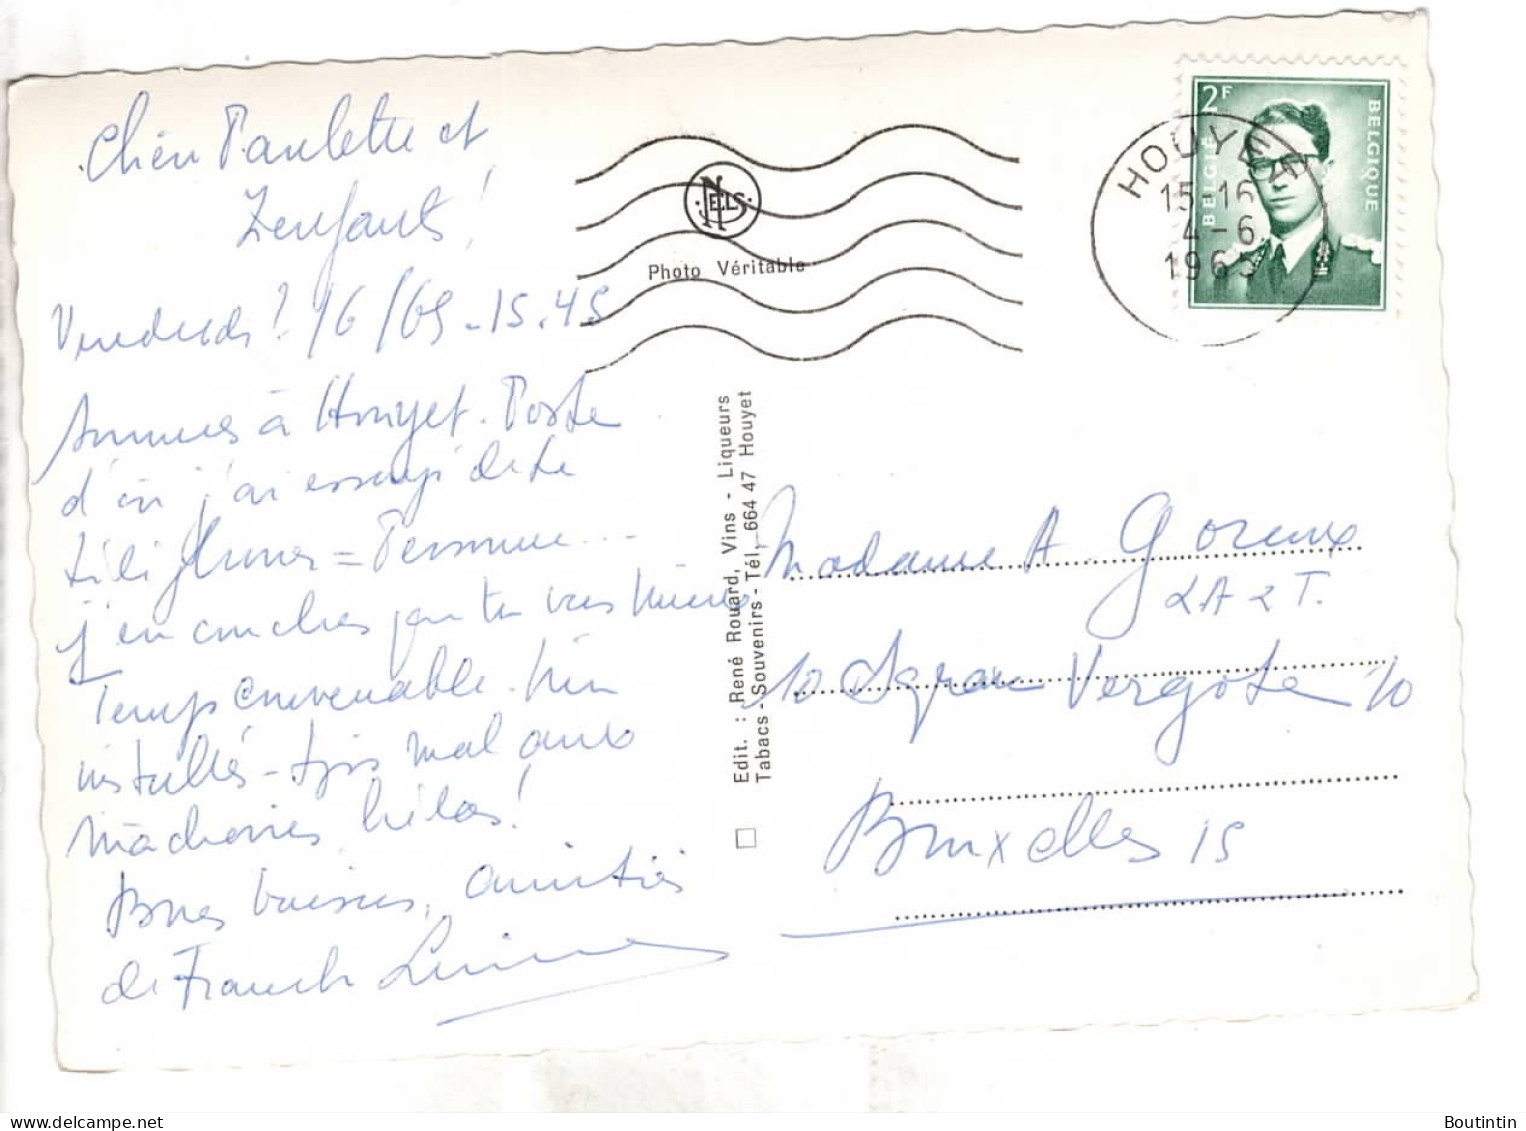 Chère Paulette et
Zenfants!
Vendredi ? /6/65 - 15.45
Sommes à Houyet. Poste
d'où j'ai essayé de te
téléphoner = Personne...
j'en conclus que tu vas mieux
Temps convenable. bien
installés - tjrs mal aux
mâchoires hélas!
Bnes baises, amitiés
de Franck
NELS
Photo Véritable
Edit. : René Rouard, Vins - Liqueurs
Tabacs - Souvenirs - Tél. 664 47 Houyet
2F
BELGIE BELGIQUE
HOUYET
15-16
4-6
1965
Madame A. Goreux
10 Square Vergote 10
Bruxelles 15
Boutintin